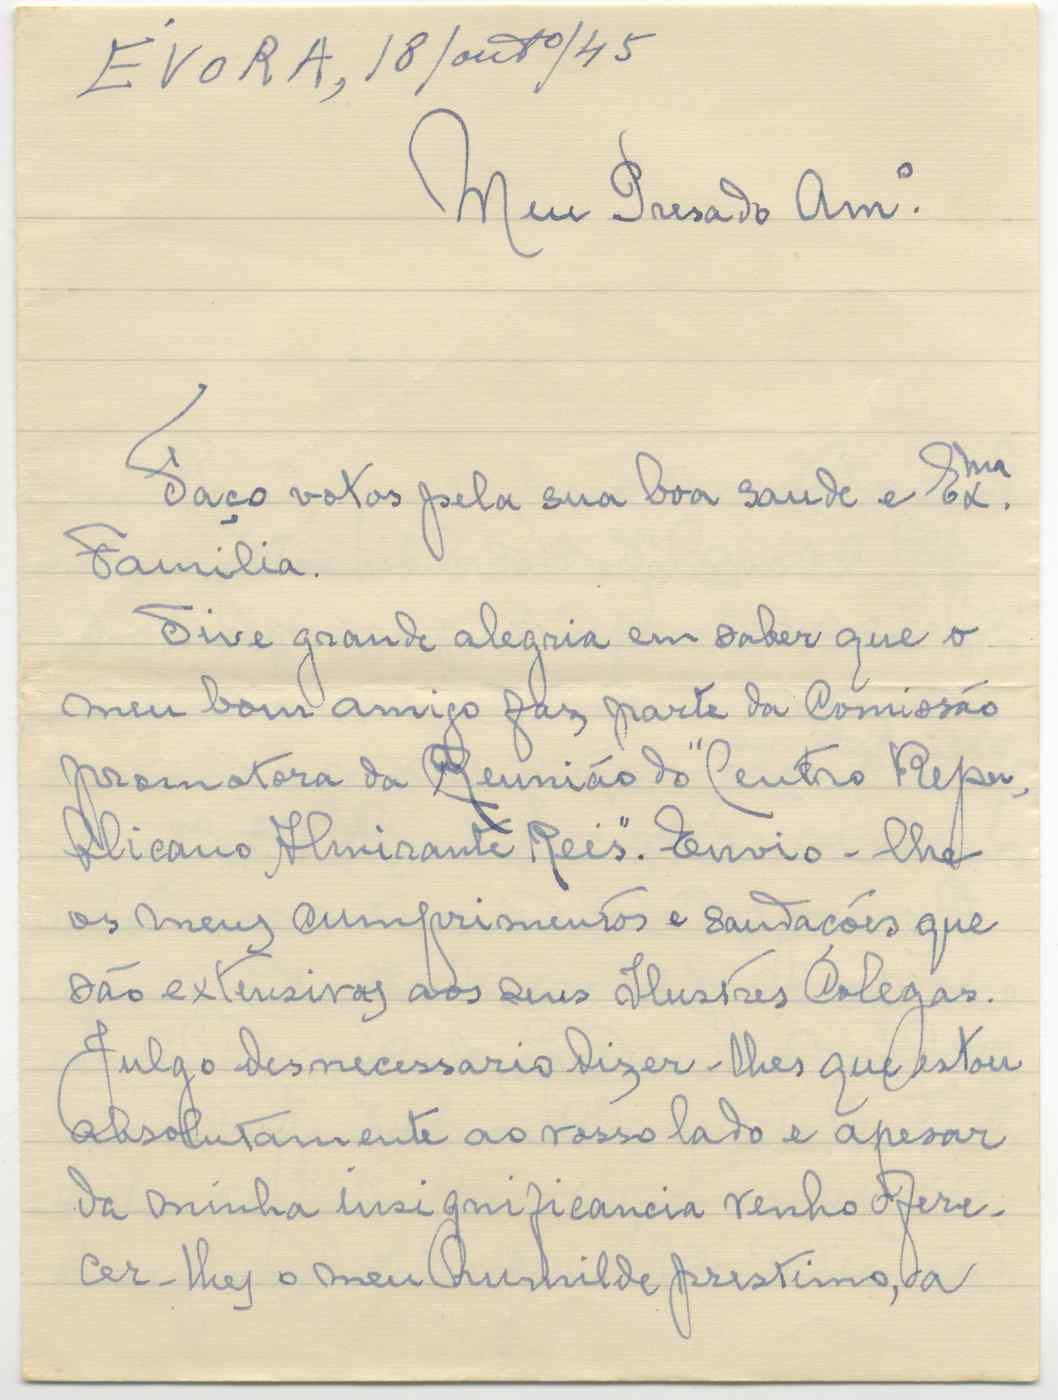 ÉVORA, 18/outº/45
Meu Presado Amº.
Faço votos pela sua boa saude e Exma.
Familia.
Tive grande alegria em saber que o
meu bom amigo faz parte da Comissão
promotora da Reunião do "Centro Repu-
blicano Almirante Reis". Envio-lhe
os meus cumprimentos e saudações que
são extensivos aos seus Ilustres Colegas.
Julgo desnecessario dizer-lhes que estou
absolutamente ao vosso lado e apesar
da minha insignificancia venho ofere-
cer-lhes o meu humilde prestimo, a